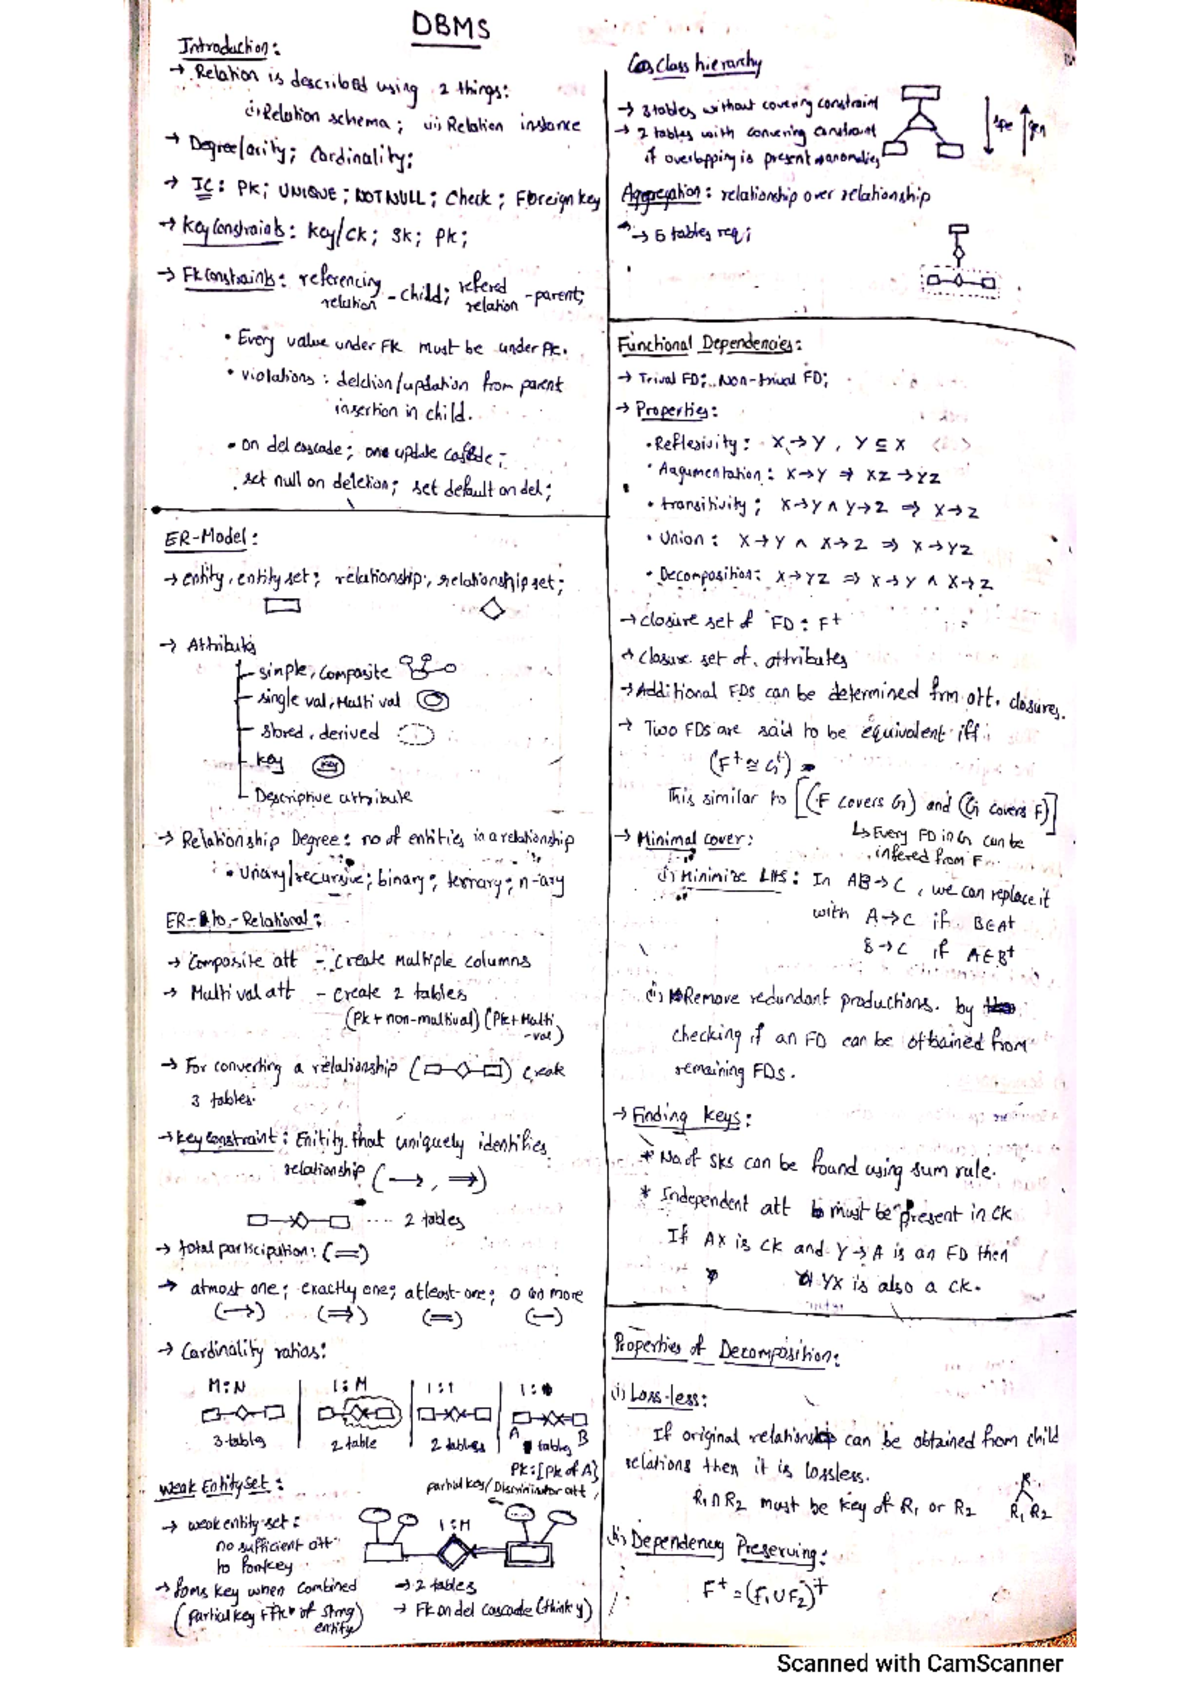 DBMS
Introduction:
→ Relation is described using 2 things:
i) Relation schema; ii) Relation instance
→ Degree/arity; Cardinality;
→ IC: PK; UNIQUE; NOT NULL; Check; Foreign key
→ Key Constraints: Key/CK; SK; PK;
→ FK Constraints: referencing relation - child; refered relation - parent;
• Every value under FK must be under PK.
• violations: deletion/updation from parent
insertion in child.
• on del cascade; on update cascade;
set null on deletion; set default on del;
ER-Model:
→ entity, entity set; relationship, relationship set;
→ Attributes
simple, composite
single val, Multi val
stored, derived
key
key
Descriptive attribute
→ Relationship Degree: no of entities in a relationship
• Unary/recursive; binary; ternary; n-ary
ER-to-Relational:
→ Composite att - create multiple columns
→ Multi val att - create 2 tables
(PK + non-multival) (PK + Multi-val)
→ For converting a relationship ( ) create
3 tables.
→ Key constraint: Enitity that uniquely identifies
relationship (→, ⇒)
.... 2 tables
→ total participation: (=)
→ atmost one; exactly one; atleast-one; 0 or more
(→) (⇒) (=) (-)
→ Cardinality ratios:
M:N 1:M 1:1 1:
A B
3 tables 2 table 2 tables tables
PK: [PK of A]
Weak Entity set:
partial key/Discriminator att
→ weak entity set:
no sufficient att
to form key
1:M
→ forms key when combined
(partial key + PK of strong entity)
→ 2 tables
→ FK on del cascade (think y)
Class hierarchy
→ 3 tables without covering constraint
→ 2 tables with convering constraint
if overlapping is present → anomalies
spe gen
Aggregation: relationship over relationship
→ 5 tables req;
Functional Dependencies:
→ Trival FD; Non-trival FD;
→ Properties:
• Reflexivity: X→Y, Y ⊆ X
• Augumentation: X→Y ⇒ XZ→YZ
• transitivity; X→Y ∧ Y→Z ⇒ X→Z
• Union: X→Y ∧ X→Z ⇒ X→YZ
• Decomposition: X→YZ ⇒ X→Y ∧ X→Z
→ closure set of FD: F⁺
→ Closure set of attributes
→ Additional FDs can be determined frm att. closures.
→ Two FDs are said to be equivalent iff:
(F⁺ ≅ G⁺)
This similar to [(F covers G) and (G covers F)]
↳ Every FD in G can be
infered from F...
→ Minimal cover:
i) Minimize LHS: In AB→C, we can replace it
with A→C if B∈A⁺
B→C if A∈B⁺
ii) Remove redundant productions. by
checking if an FD can be obtained from
remaining FDs.
→ Finding Keys:
* No. of SKs can be found using sum rule.
* Independent att must be present in CK
If AX is CK and Y→A is an FD then
YX is also a CK.
Properties of Decomposition:
i) Loss-less:
If original relation can be obtained from child
relations then it is lossless.
R₁∩R₂ must be key of R₁ or R₂
R
R₁ R₂
ii) Dependency Preserving:
F⁺ = (F₁∪F₂)⁺
Scanned with CamScanner